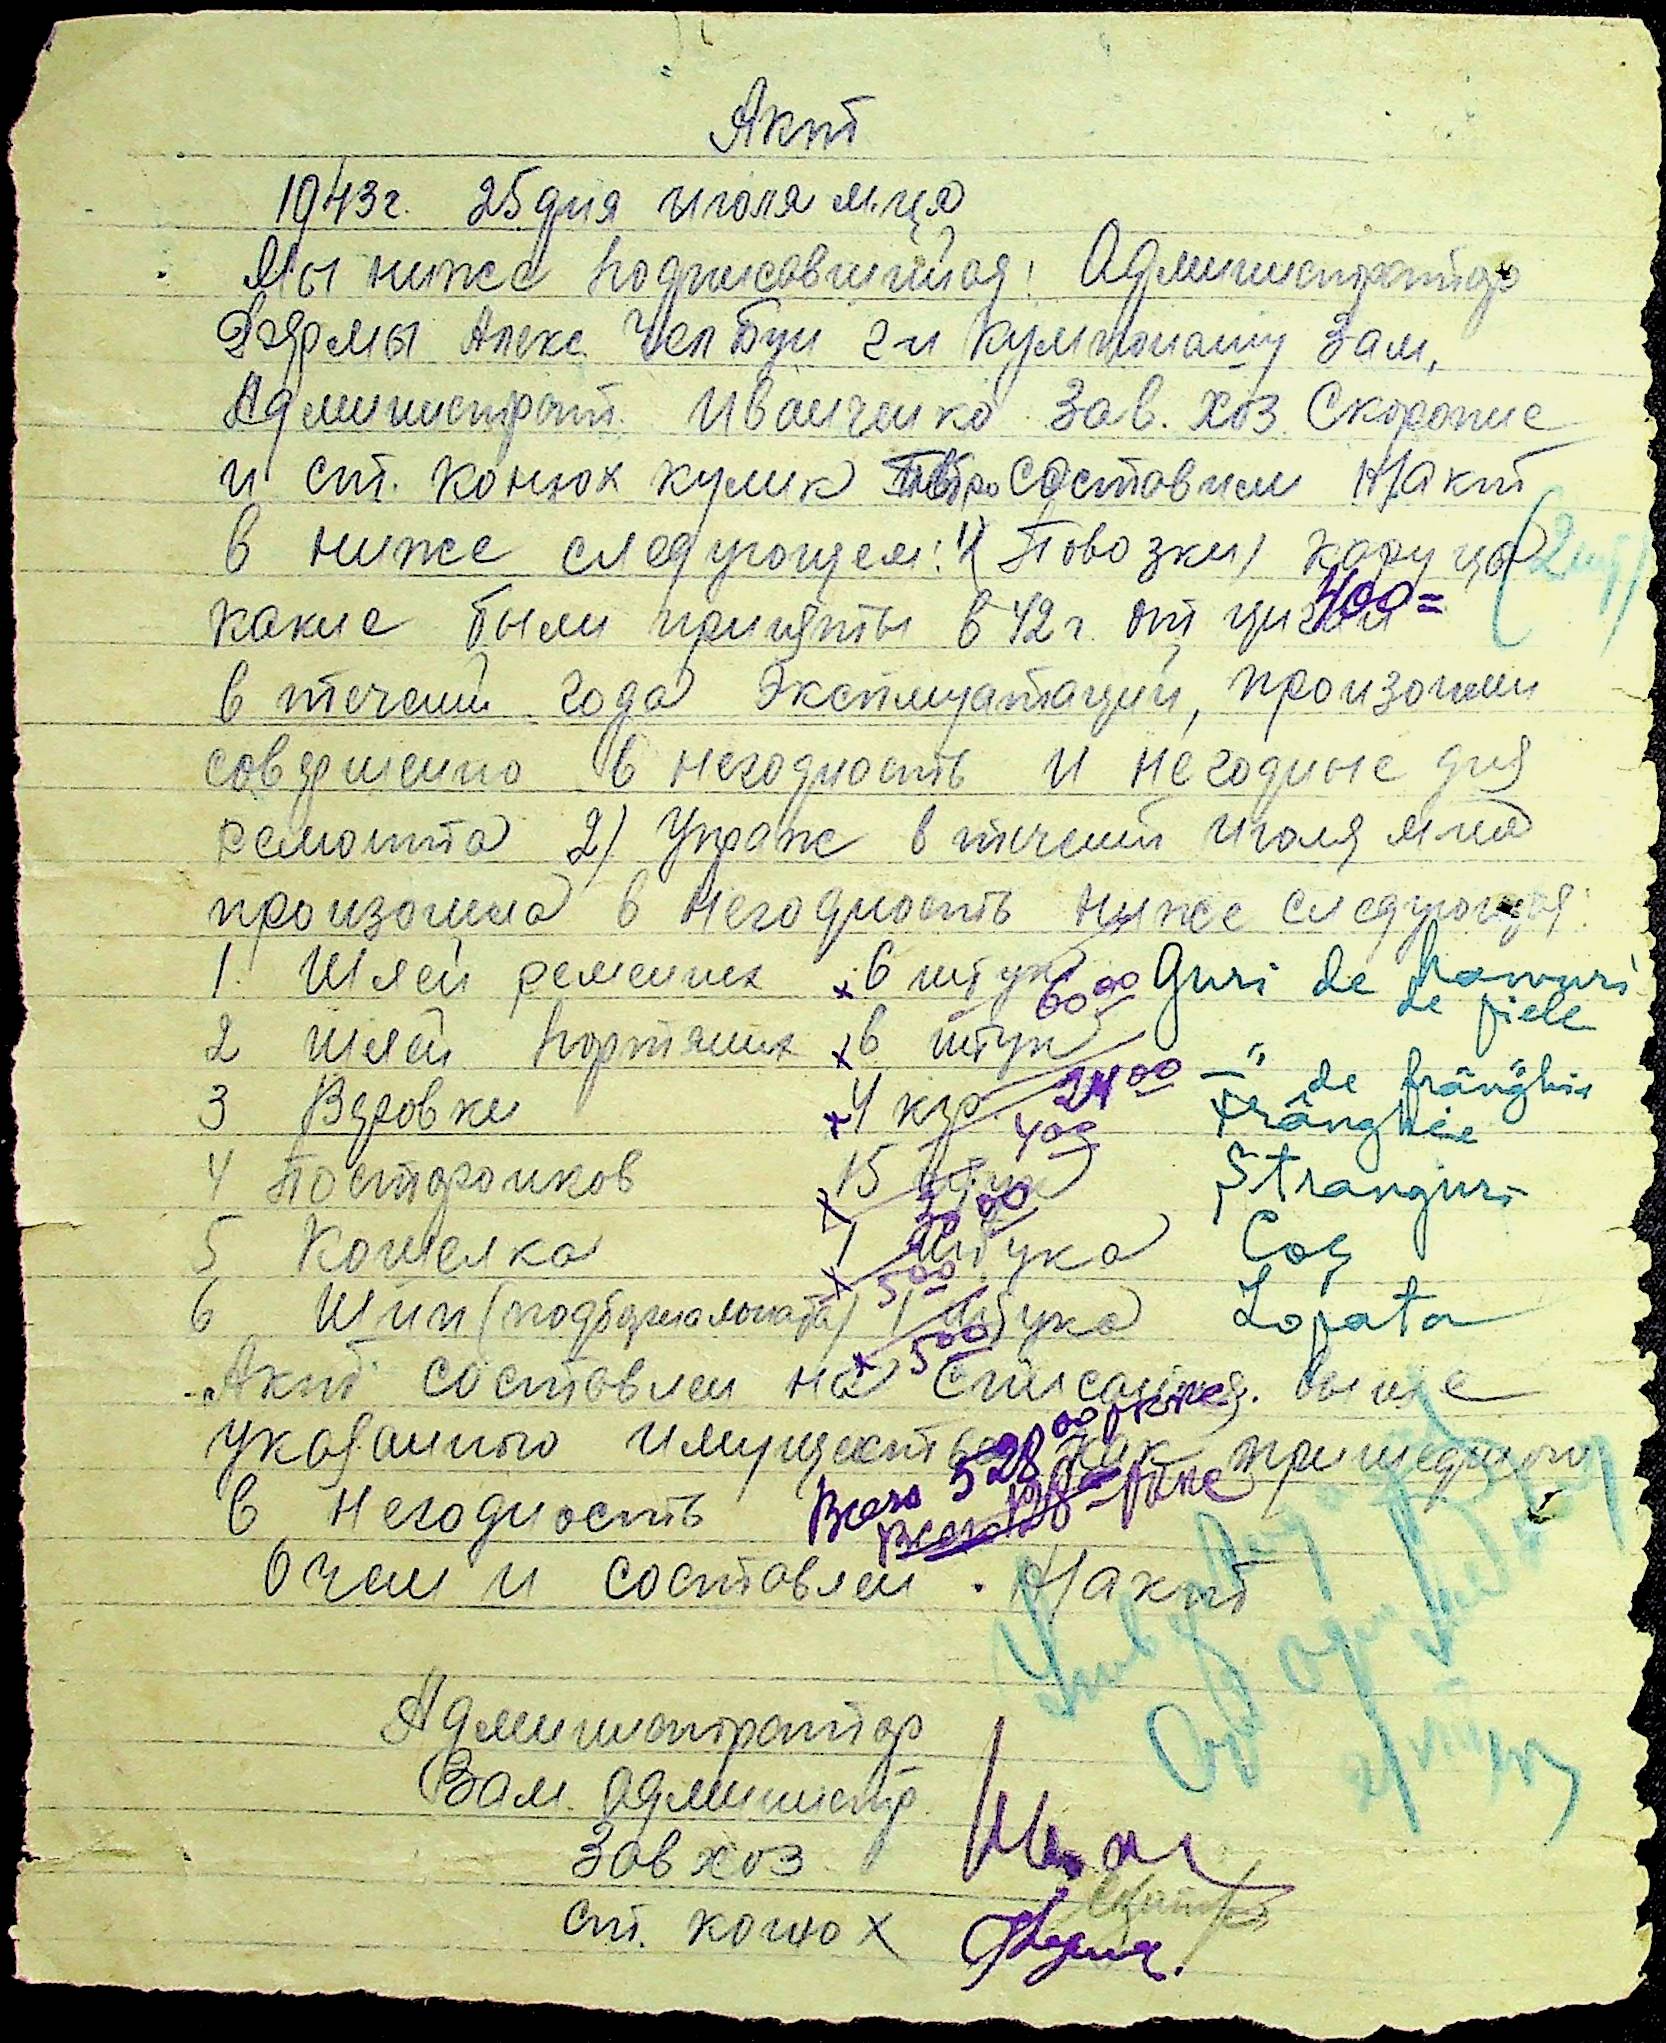 Акт
1943г. 25 дня июля м.ця
Мы ниже подписавшийся: Администратор
Фермы Алекс. 2-и Зам.
Администрат. Иваненко Зав. хоз Скоропис
и ст. конюх кулик Петро составили н/акт
в ниже следующем: 1( Повозки) каруца (2 шт)
какие были приняты в 42 г. от циган 400=
в течении года Эксплуатации, произошли
совершенно в негодность и негодные для
ремонта 2) Упраж в течении июля м-ца
произошла в негодность ниже следующая:
1. Шлей ременых x 6 штук 60 00 Guri de hamuri
de piele
2 шлей портяных x 6 штук 24 00 —"— de frânghie
3 Веровки x 4 кгр. 4 00 Frânghie
4 Посторонков x 15 штук 30 00 Stranguri
5 Кошелка x 1 штука 5 00 Coș
6 Шип ( ) 1 штука x 5 00 Lopata
Акт составлен на списания. выше
указанного имущества как пришедшого
в негодность Всего 528 00 Рккс
Всего 128= Рккс
О чем и составлен н/акт
Администратор
Зам. админстр.
Завхоз
ст. конюх